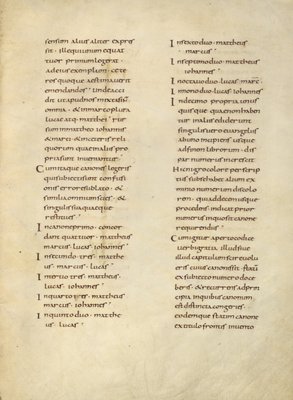 sensum alius aliter expres
sit · ille qui unum e quat
tuor primum legerat ·
ad eius exemplum cete
ros quoque aestimaverit
emendandos · Unde acci
dit ut apud nos mixta sint
omnia · & in marco plura
lucae atq. matthei · rur
sum in mattheo iohannis
& marci · & in ceteris reli
quorum quae in aliis pro
pria sunt inveniantur ·
Cum itaque canones legeris
qui subiecti sunt confusi
onis errore sublato · &
similia omnium scies · &
singulis sua quaeque
restitues ·
In canone primo · concor
dant quattuor · mattheus
marcus · lucas · iohannes ·
In secundo · tres · matthe
us · marcus · lucas ·
In tertio · tres · mattheus ·
lucas · iohannes ·
In quarto · tres · mattheus ·
marcus · iohannes ·
In quinto duo · matthe
us · lucas ·
In sexto duo · mattheus ·
marcus ·
In septimo duo · mattheus
iohannes ·
In octavo duo · lucas · marc·
In nono duo · lucas · iohannes
In decimo propria · unus
quisque quae non haben
tur in aliis ediderunt ·
singulis vero evangeliis
ab uno incipiens usque
ad finem librorum · dis
par numerus increscit ·
Hic nigro colore perscrip
tus sub se habet alium ex
minio numerum discolo
rem · qui ad decem usque
procedens · indicat prior
numerus in quo sit canone
requirendus ·
Cum igitur aperto codice
verbi gratia · illud sive
illud capitulum scire volu
eris cuius canonis sit · statī
ex subiecto numero doce
beris · & recurrens ad prin
cipia in quibus canonum ·
est distincta congeries
eodemque statim canone
ex titulo frontis invento